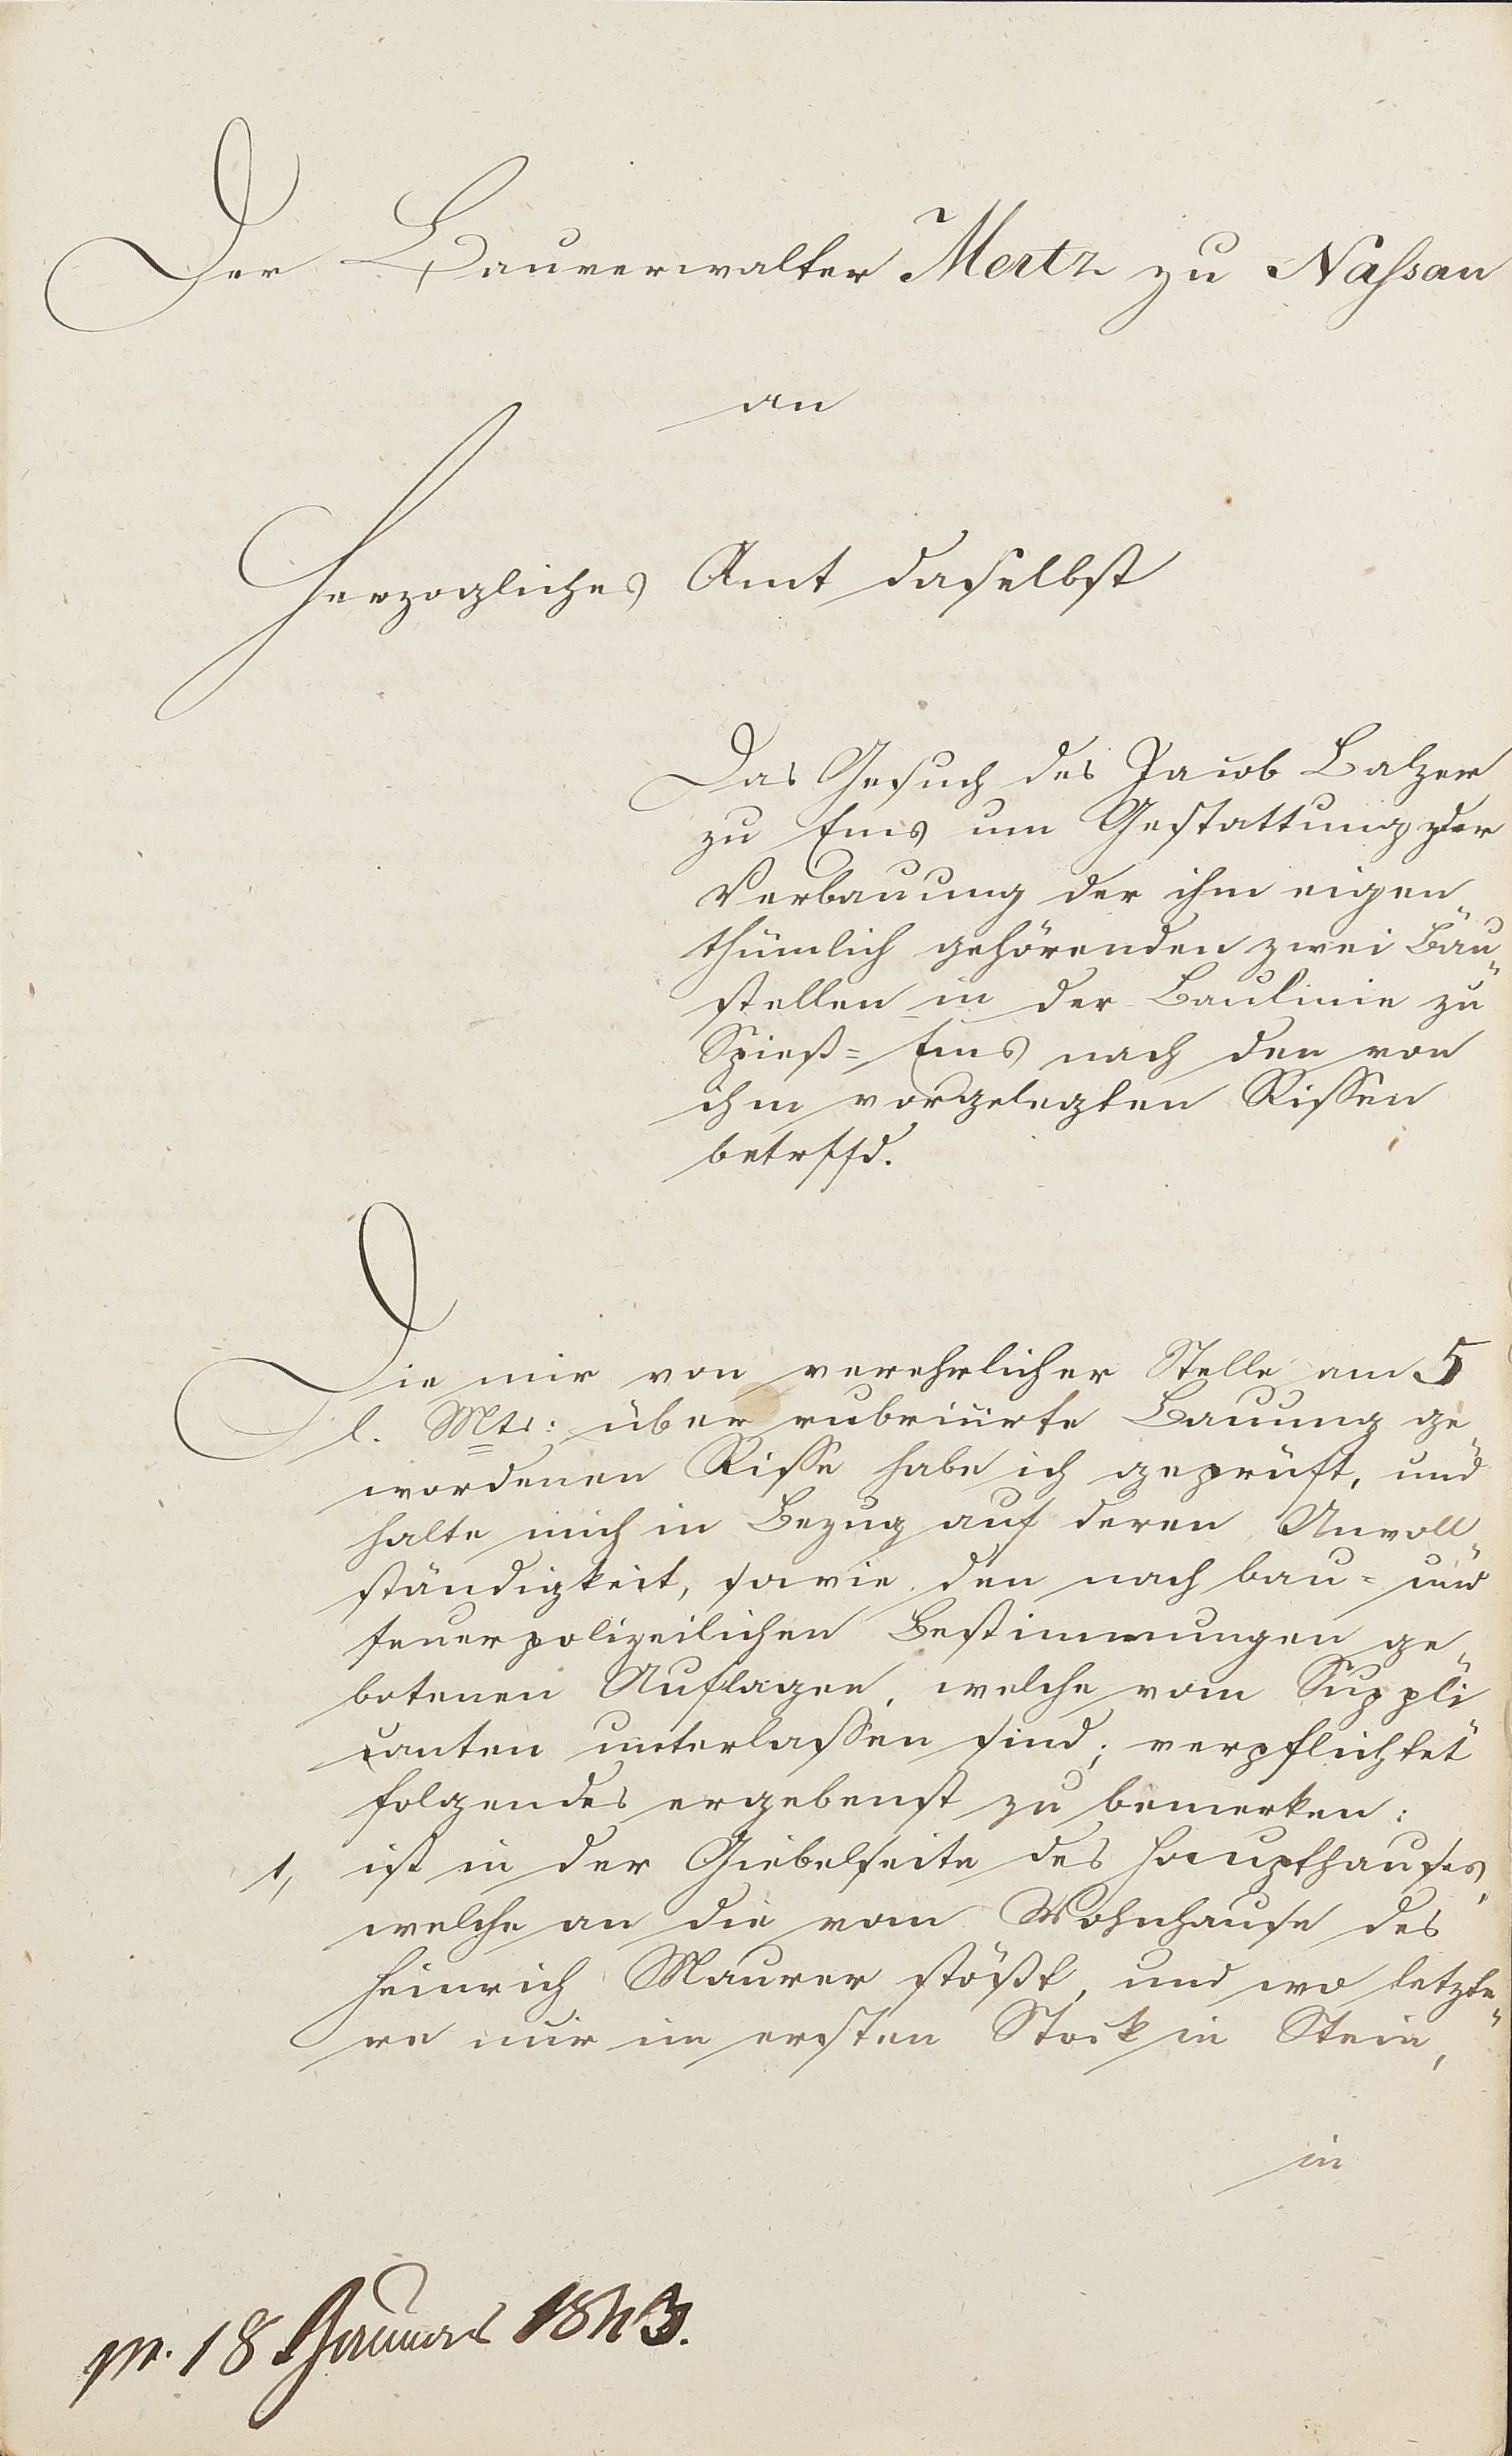 Der Bauverwalter Mertz zu Nassau
an
Herzogliches Amt daselbst
Das Gesuch des Jacob Balzer
zu Ems um Gestattung der
Verbauung der ihm eigen„
thümlich gehörenden zwei Bau„
stellen in der Baulinie zu
Spieß= Ems nach den von
ihm vorgelegten Rissen
betrffd.
Die mir von verehrlicher Stelle am 5
l. Mts: über rubricirte Bauung ge„
wordenen Risse habe ich geprüft, und
halte mich in Bezug auf deren Unvoll„
ständigkeit, sowie den nach bau= und
feuerpolizeilichen Bestimmungen ge„
botenen Auflagen, welche vom Suppli„
canten unterlassen sind; verpflichtet
folgendes ergebenst zu bemerken:
1, ist in der Giebelseite des Haupthauses,
welche an die vom Wohnhause des
Heinrich Maurer stößt, und wo letzte„
re nur im ersten Stock in Stein,
in
pr. 18 Januar 1843.